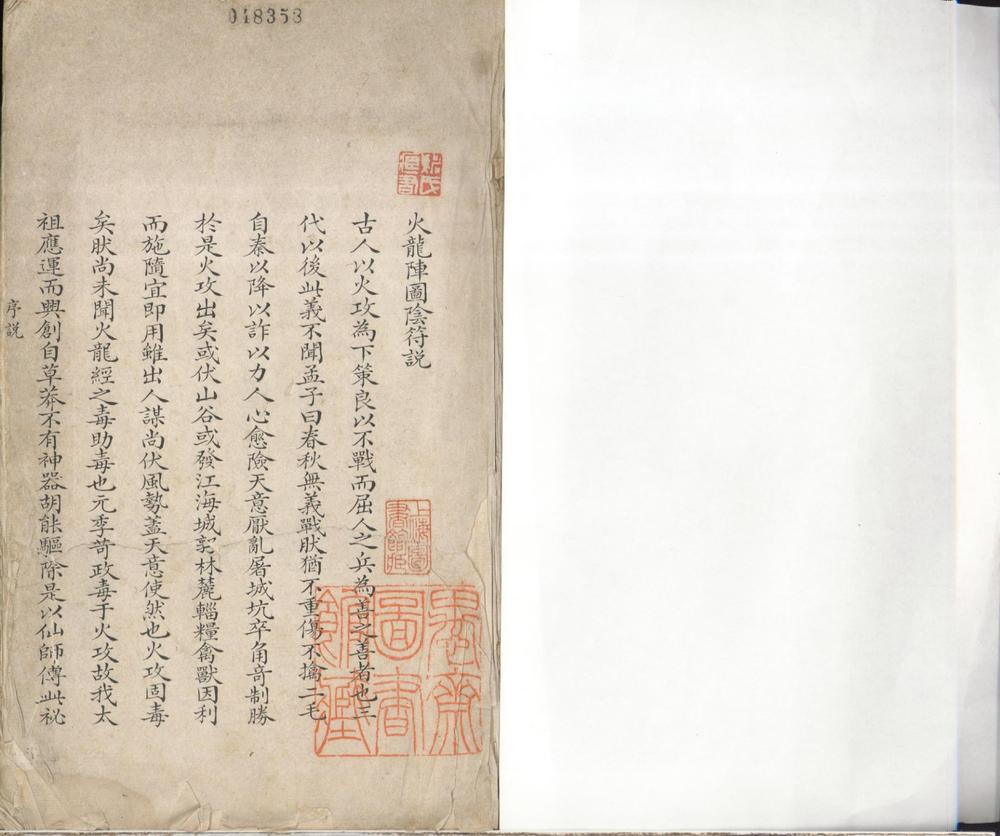 048353
火龍陣圖陰符説
古人以火攻為下策良以不戰而屈人之兵為善之善者也三
代以後此義不聞孟子曰春秋無義戰肰猶不重傷不擒二毛
自秦以降以詐以力人心愈險天意厭亂屠城坑卒角竒制勝
於是火攻出矣或伏山谷或發江海城郭林麓輜糧禽獸因利
而施隨宜即用雖出人謀尚伏風勢蓋天意使然也火攻固毒
矣肰尚未聞火龍經之毒助毒也元季苛政毒于火攻故我太
祖應運而興創自草莽不有神器胡能驅除是以仙師傳此祕
序説
上海圖書館臧